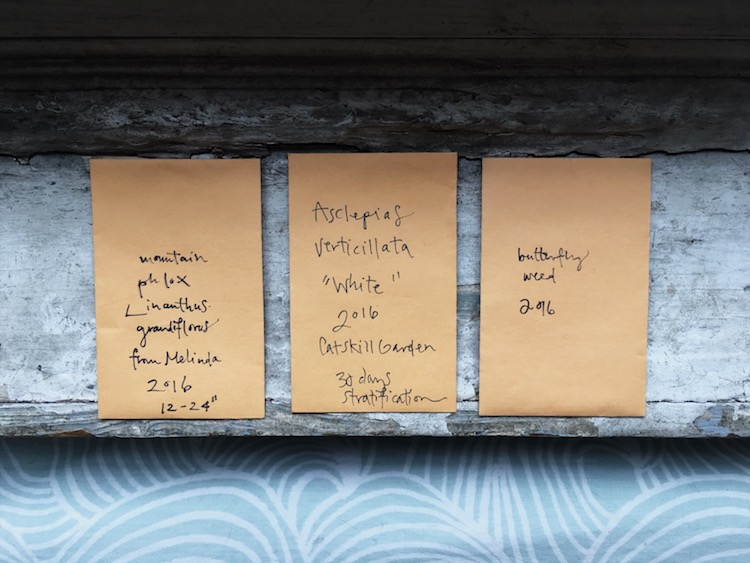 mountain
phlox
Linanthus
grandiflorus
from Melinda
2016
12-24"
Asclepias
verticillata
"White"
2016
Catskill Garden
30 days
stratification
butterfly
weed
2016